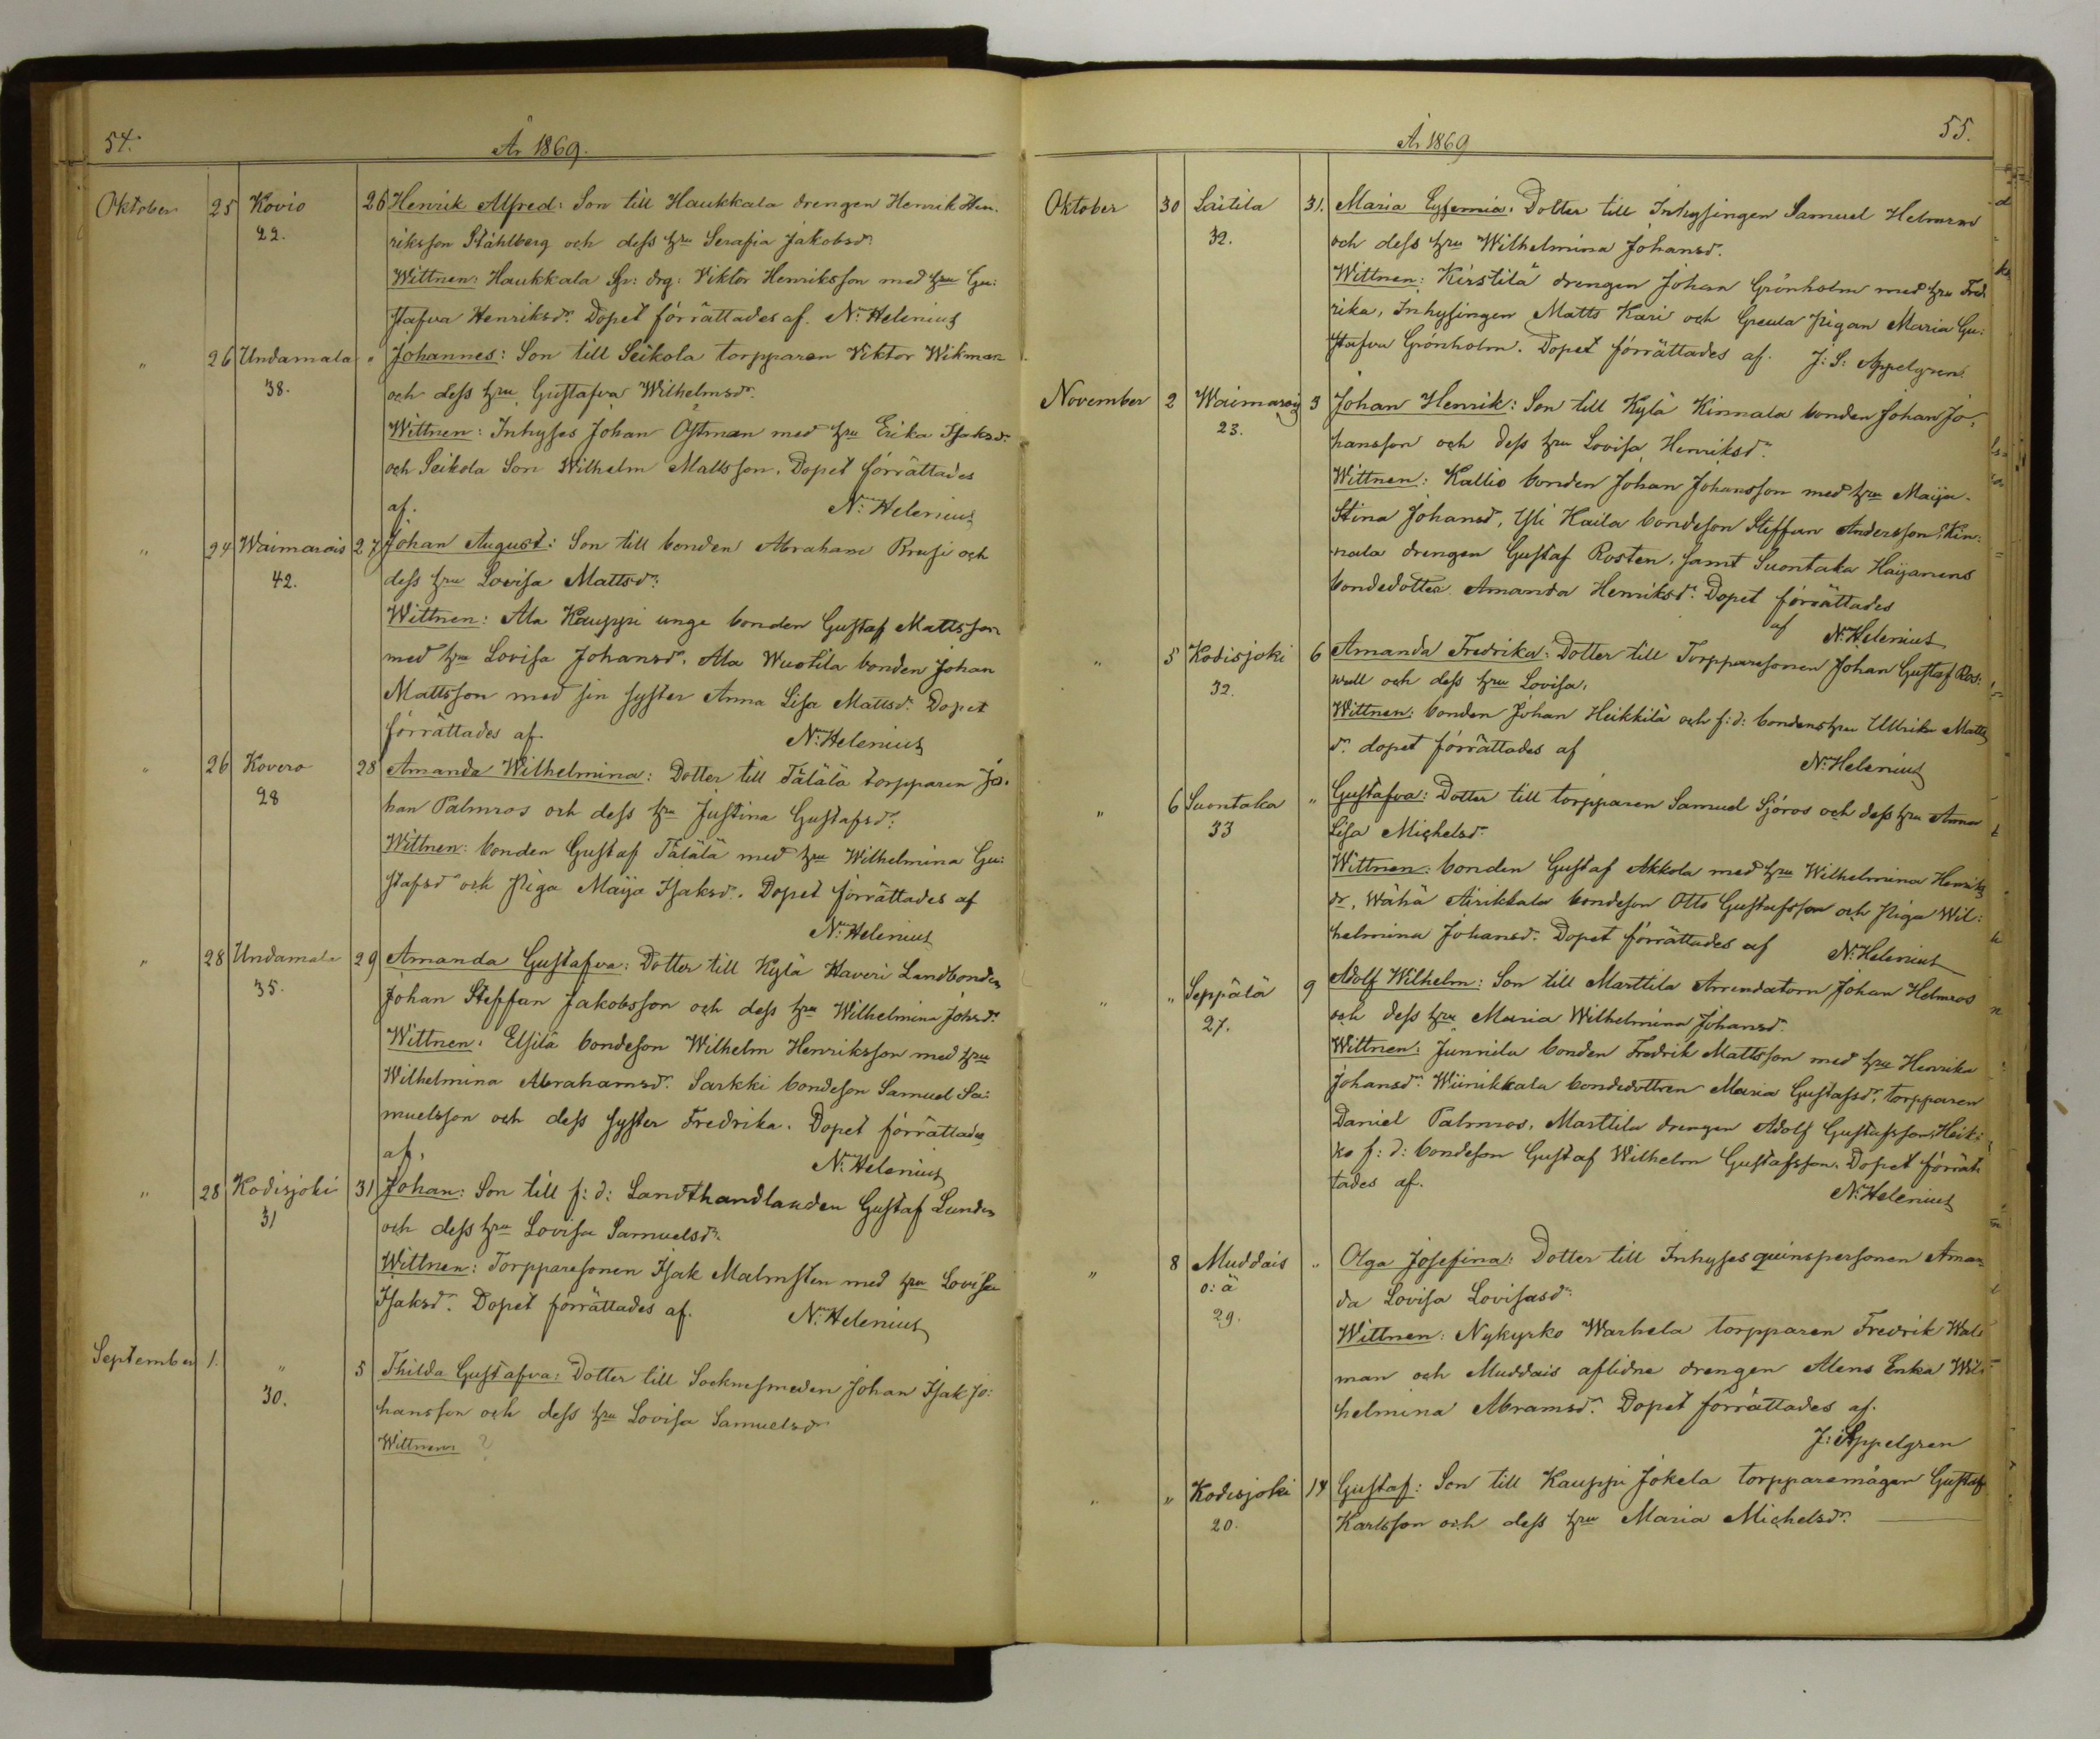 54.
År 1869.
Oktober 25 Kovio 26 Henrik Alfred: Son till Haukkala drengen Henrik Hen-
22. riksson Ståhlberg och dess hru Serafia Jakobsdr
Wittnen: Haukkala Sr: drg: Viktor Henriksson med hru Gu:
stafva Henriksdr. Dopet förrättades af. N: Helenius
" 26 Undamala " Johannes: Son till Seikola torpparen Viktor Wikman
38. och dess hru Gustafva Wilhelmsdr.
Wittnen: Inhyses Johan Östman med hru Erika Isaksdr.
och Seikola Son Wilhelm Mattsson. Dopet förrättades
af. N: Helenius
" 24 Waimarais 27 Johan August: Son till bonden Abraham Krusi och
42. dess hru Lovisa Mattsdr:
Wittnen: Ala Kauppi unge bonden Gustaf Mattsson
med hru Lovisa Johansdr. Ala Wuotila bonden Johan
Mattsson med sin syster Anna Lisa Mattsdr. Dopet
förrättades af. N: Helenius
" 26 Kovero 28 Amanda Wilhelmina: Dotter till Tälälä torpparen Jo-
28 han Palmros och dess hru Justina Gustafsdr:
Wittnen: bonden Gustaf Tälälä med hru Wilhelmina Gu:
stafsdr och Piga Maija Isaksdr. Dopet förrättades af
N: Helenius
" 28 Undamala 29 Amanda Gustafva: Dotter till Kylä Kaveri Landbonden
35. Johan Steffan Jakobsson och dess hru Wilhelmina Johsdr.
Wittnen: Elsilä bondeson Wilhelm Henriksson med hru
Wilhelmina Abrahamsdr. Sarkki bondeson Samuel Sa:
muelsson och dess syster Fredrika. Dopet förrättades
af. N: Helenius
" 28 Kodisjoki 31 Johan: Son till f: d: Landthandlanden Gustaf Lunden
31 och dess hru Lovisa Samuelsdr.
Wittnen: Torpparesonen Isak Malmsten med hru Lovisa
Isaksdr. Dopet förrättades af. N: Helenius
September 1. " 5 Thilda Gustafva: Dotter till Socknesmeden Johan Isak Jo:
30. hansson och dess hru Lovisa Samuelsdr
Wittnen: ?
55.
År 1869
Oktober 30 Laitila 31. Maria Eufemia: Dotter till Inhysingen Samuel Helmros
32. och dess hru Wilhelmina Johansdr.
Wittnen: Kirstilä drengen Johan Grönholm med hru Fred
rika, Inhysingen Matts Kari och Greula Pigan Maria Gu:
stafva Grönholm. Dopet förrättades af. J: S: Appelgren.
November 2 Waimarais 3 Johan Henrik: Son till Kylä Kinnala bonden Johan Jo-
23. hansson och dess hru Lovisa Henriksdr.
Wittnen: Kallio bonden Johan Johansson med hru Maija-
Stina Johansd, Yli Kaila bondeson Steffan Andersson, Kin:
nala drengen Gustaf Rosten, samt Suontaka Haijanens
bondedotter Amanda Henriksdr. Dopet förrättades
af N: Helenius
" 5 Kodisjoki 6 Amanda Fredrika: Dotter till Torpparesonen Johan Gustaf Ros:
32. wall och dess hru Lovisa.
Wittnen: bonden Johan Heikkilä och f: d: bondens hru Ullrika Matts
dr. dopet förrättades af N: Helenius
" 6 Suontaka " Gustafva: Dotter till torpparen Samuel Sjöros och dess hru Anna
33 Lisa Michelsdr.
Wittnen: bonden Gustaf Akkola med hru Wilhelmina Henriks
dr, Wähä Airikkala bondeson Otto Gustafsson och Piga Wil:
helmina Johansdr. Dopet förrättades af N: Helenius
" " Seppälä 9 Adolf Wilhelm: Son till Marttila Arrendatorn Johan Helmros
27. och dess hru Maria Wilhelmina Johansdr.
Wittnen: Junnila bonden Fredrik Mattsson med hru Henrika
Johansdr. Wiinikkala bondedottren Maria Gustafsdr, torpparen
Daniel Palmros, Marttila drengen Adolf Gustafsson, Heik:
ko f: d: bondeson Gustaf Wilhelm Gustafsson. Dopet förrät
tades af. N: Helenius
" 8 Muddais " Olga Josefina: Dotter till Inhyses quinspersonen Aman
o: ä da Lovisa Lovisasdr.
29. Wittnen: Nykyrko Warhela torpparen Fredrik Wal:
man och Muddais aflidne drengen Alens Enka Wil:
helmina Abramsdr. Dopet förrättades af.
J: Appelgren
" " Kodisjoki 14 Gustaf: Son till Kauppi Jokela torpparemågen Gustaf
20. Karlsson och dess hru Maria Michelsdr.